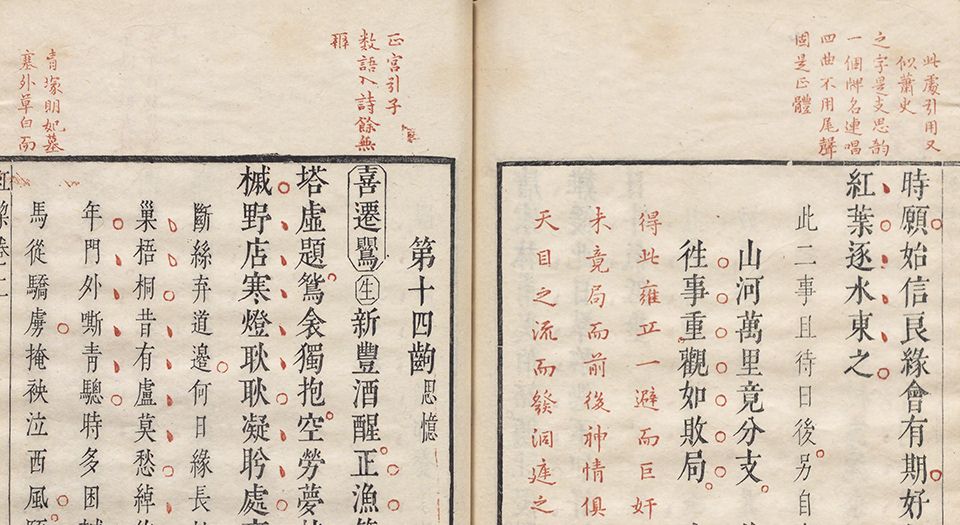 此處引用又
似蕭史
之字是支思韵
一個牌名連唱
四曲不用尾聲
固是正體
時願始信良緣會有期好
紅葉逐水東之
此二事且待日後另自
山河萬里竟分支
徃事重觀如敗局
得此雍
一避而巨奸
未竟局而前後神情俱
天目之流而發洞庭之
正宮引子
數語入詩餘無
辨
青塚明妃墓
塞外草白而
第十四齣 思憶
喜遷鶯 生 新豐酒醒正漁
塔虛題鴛衾獨抱空勞夢
槭野店寒燈耿耿凝眸處
斷絲弃道邊何日緣長
巢梧桐昔有盧莫愁綽
年門外嘶青驄時多困
馬從驕虜掩袂泣西風